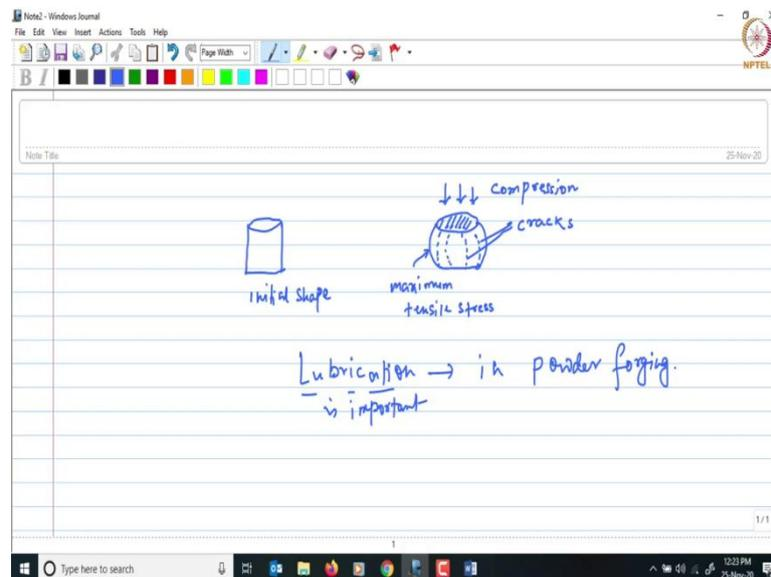 Note2 - Windows Journal
File Edit View Insert Actions Tools Help
Page Width
B I
NPTEL
Note Title
25-Nov-20
compression
cracks
initial shape
maximum
tensile stress
Lubrication → in powder forging.
is important
1/1
1
Type here to search
12:23 PM
25-Nov-20